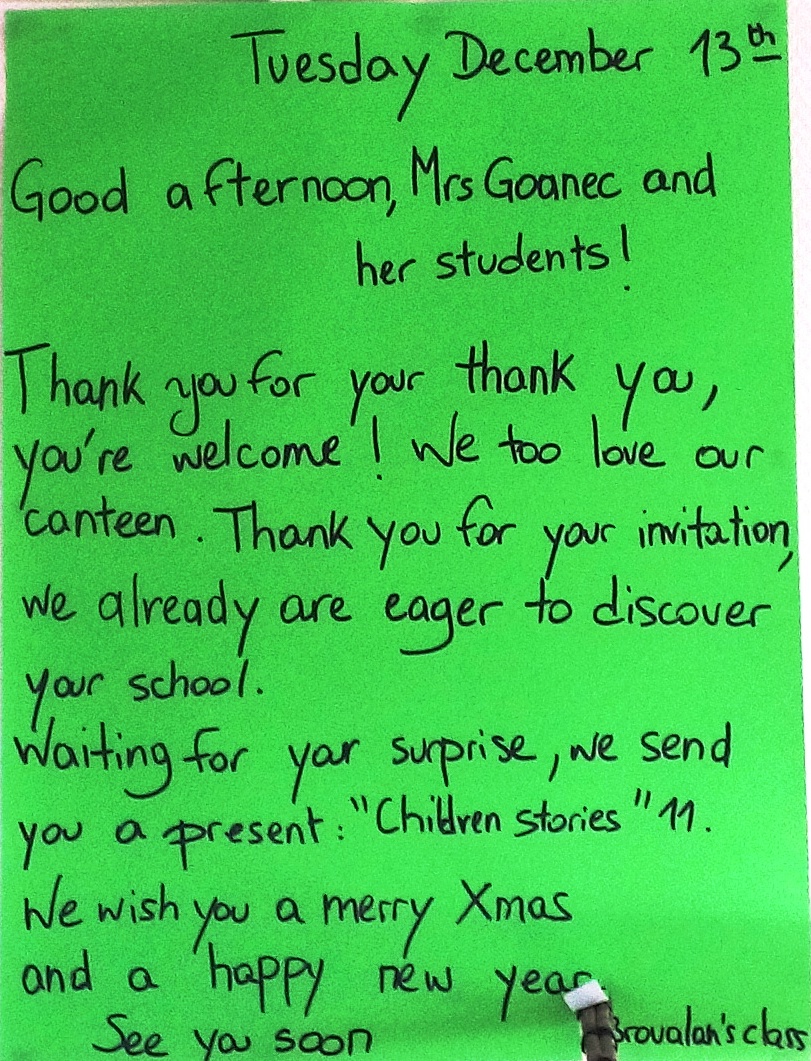 Tuesday December 13th
Good afternoon, Mrs Goanec and
her students!
Thank you for your thank you,
you're welcome! We too love our
canteen. Thank you for your invitation,
we already are eager to discover
your school.
Waiting for your surprise, we send
you a present: "Children stories" 11.
We wish you a merry Xmas
and a happy new year.
See you soon
Broualan's class